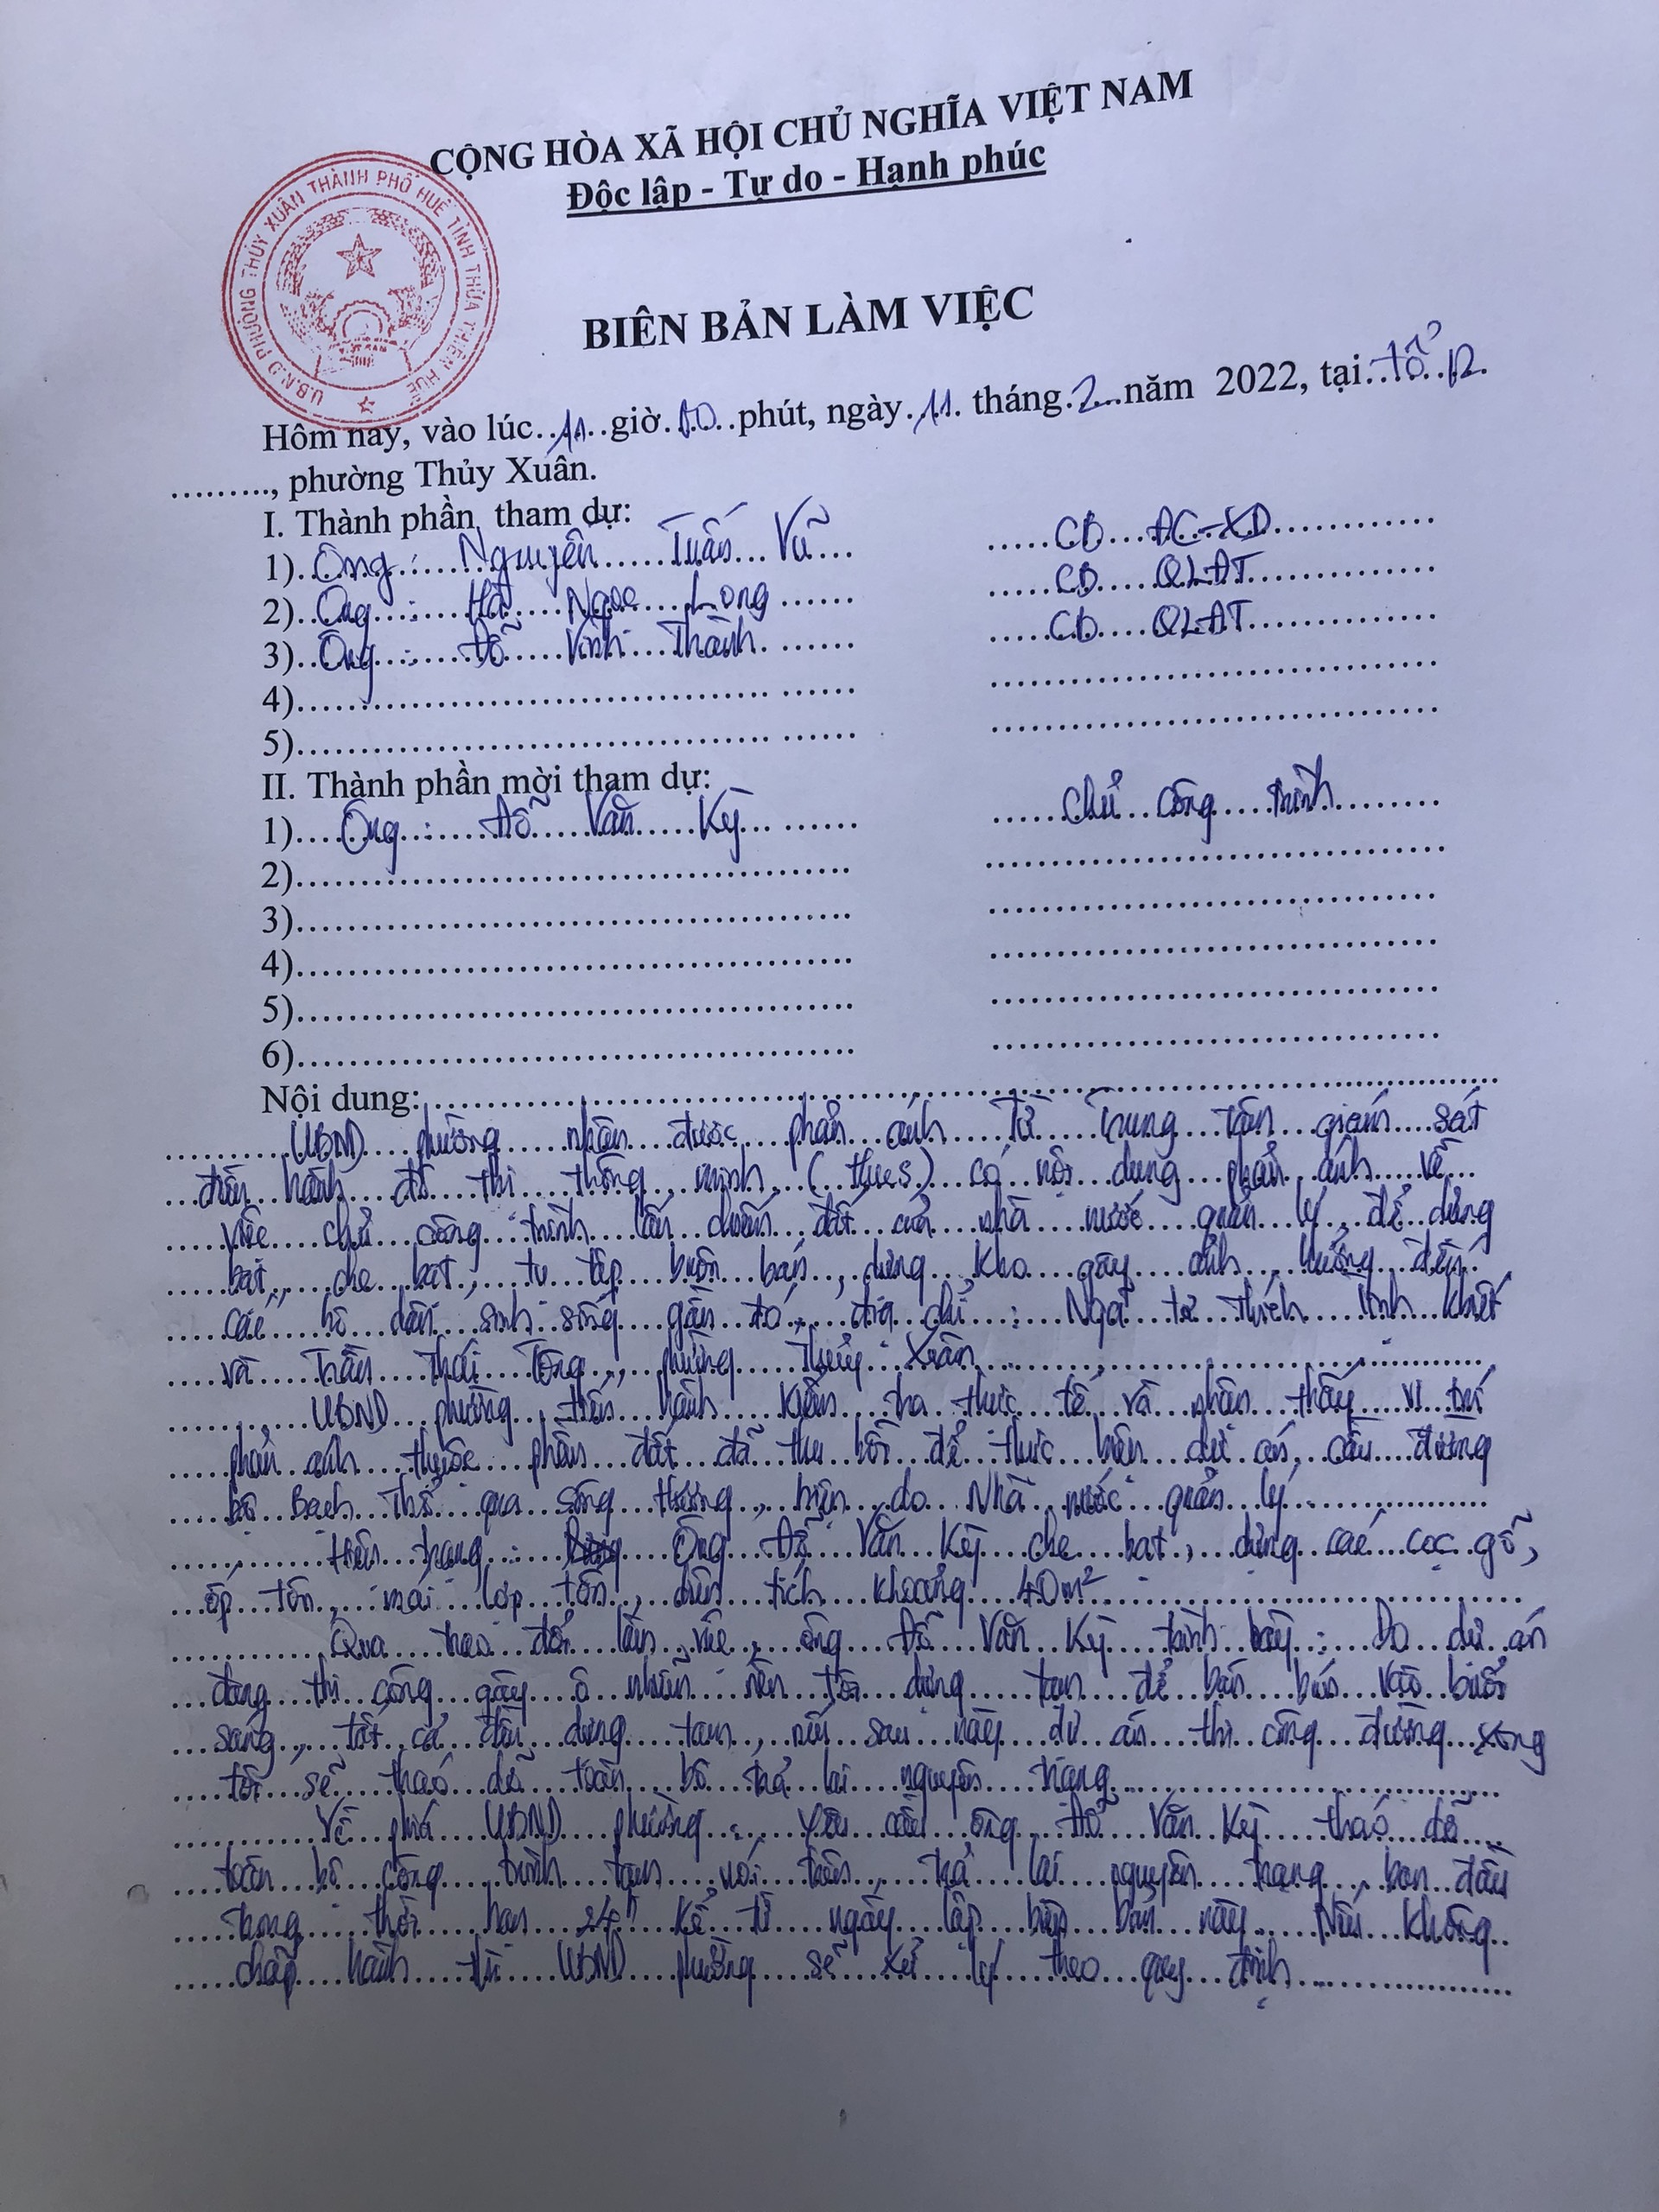 CỘNG HÒA XÃ HỘI CHỦ NGHĨA VIỆT NAM
Độc lập - Tự do - Hạnh phúc
U.B.N.D PHƯỜNG THỦY XUÂN THÀNH PHỐ HUẾ TỈNH THỪA THIÊN HUẾ
BIÊN BẢN LÀM VIỆC
Hôm nay, vào lúc 11 giờ 10 phút, ngày 11 tháng 2 năm 2022, tại Tổ 12
........., phường Thủy Xuân.
I. Thành phần tham dự:
1) Ông: Nguyễn Tuấn Vũ CB ĐC-XD
2) Ông: Hà Ngọc Long CB QLĐT
3) Ông: Đỗ Vinh Thành CB QLĐT
4)
5)
II. Thành phần mời tham dự:
1) Ông: Đỗ Văn Kỳ Chủ công trình
2)
3)
4)
5)
6)
Nội dung:
UBND phường nhận được phản ánh Từ Trung tâm giám sát
điều hành đô thị thông minh (Hues) có nội dung phản ánh về
việc chủ công trình lấn chiếm đất của nhà nước quản lý, để dựng
bạt, che bạt, tụ tập buôn bán, dựng kho gây ảnh hưởng đến
các hộ dân sinh sống gần đó, địa chỉ: Ngã tư Thích Tịnh Khiết
và Trần Thái Tông, phường Thuỷ Xuân
UBND phường tiến hành kiểm tra thực tế và nhận thấy vị trí
phản ánh thuộc phần đất đã thu hồi để thực hiện dự án, cầu đường
bộ Bạch Thổ qua sông Hương, hiện do Nhà nước quản lý
Hiện trạng: Ông Đỗ Văn Kỳ che bạt, dựng các cọc gỗ,
ốp tôn, mái lợp tôn, diện tích khoảng 40m²
Qua trao đổi làm việc, ông Đỗ Văn Kỳ trình bày: Do dự án
đang thi công gây ô nhiễm nên tôi dựng tạm để bán bún vào buổi
sáng, tất cả đều dựng tạm, nếu sau này dự án thi công đường xong
tôi sẽ tháo dỡ toàn bộ trả lại nguyên trạng
Về phía UBND phường: yêu cầu ông Đỗ Văn Kỳ tháo dỡ
toàn bộ công trình tạm nói trên, trả lại nguyên trạng ban đầu
trong thời hạn 24h kể từ ngày lập biên bản này. Nếu không
chấp hành thì UBND phường sẽ xử lý theo quy định